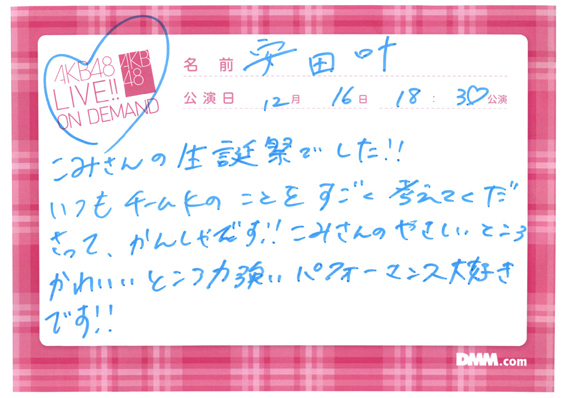 AKB48
LIVE!!
ON DEMAND
AKB
48
名前 安田叶
公演日 12月 16日 18:30公演
こみさんの生誕祭でした!!
いつもチームKのことをすごく考えてくだ
さって、かんしゃです!!こみさんのやさしいところ
かわいいところ力強いパフォーマンス大好き
です!!
DMM.com